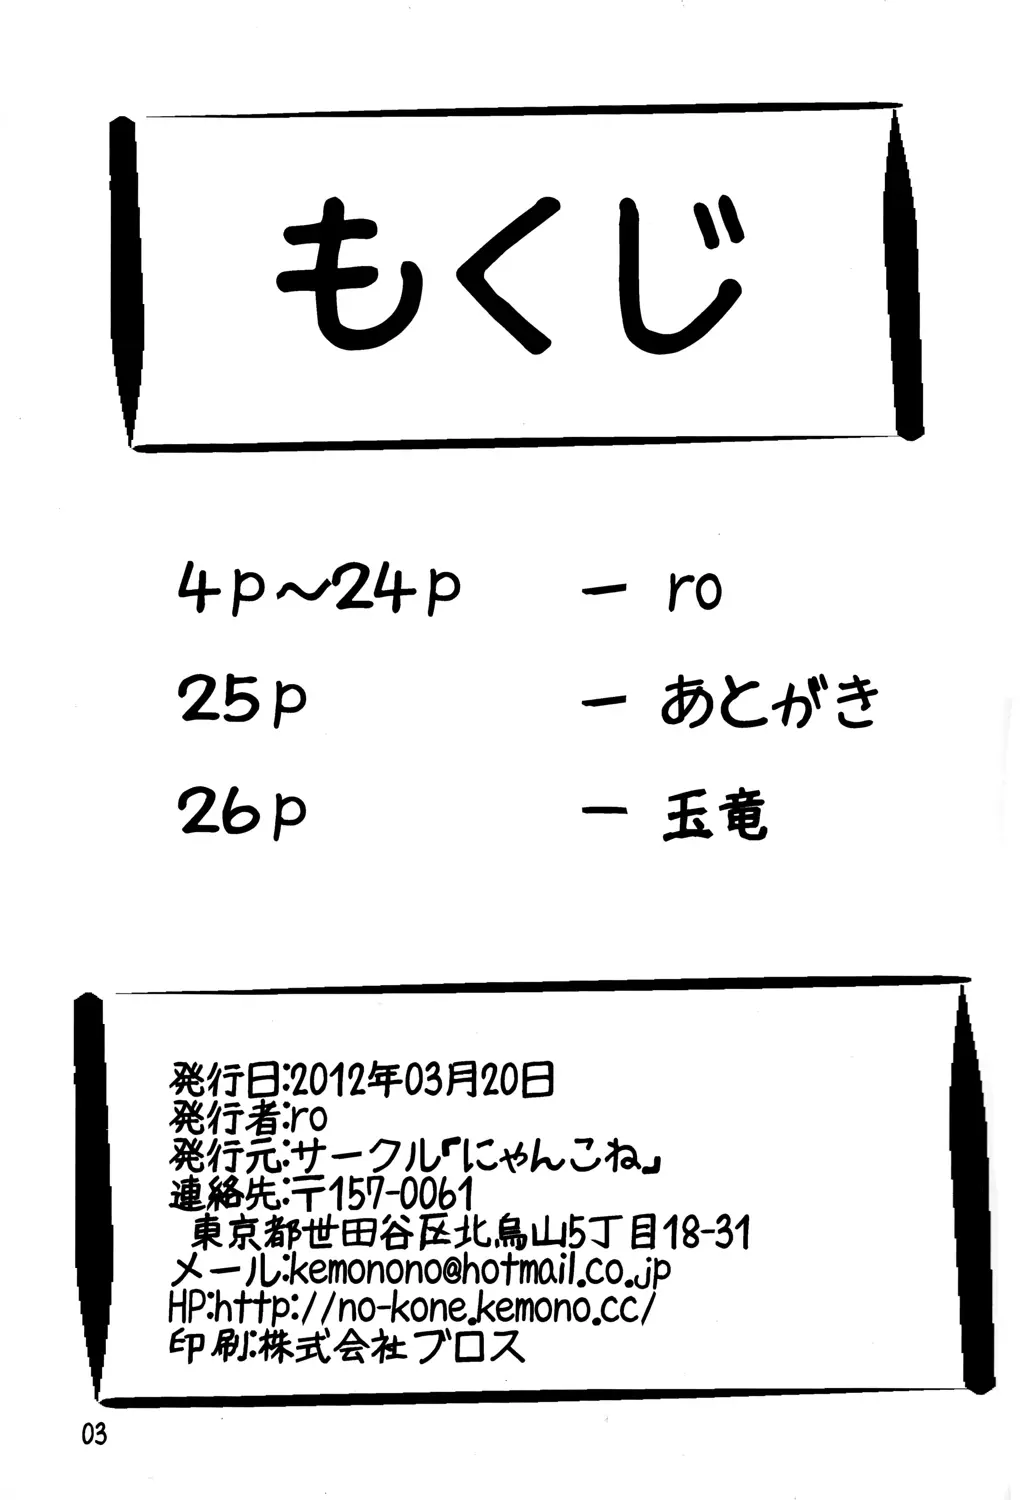 もくじ
4p～24p ー ro
25p ー あとがき
26p ー 玉竜
発行日:2012年03月20日
発行者:ro
発行元:サークル「にゃんこね」
連絡先:〒157-0061
東京都世田谷区北烏山5丁目18-31
メール:kemonono@hotmail.co.jp
HP:http://no-kone.kemono.cc/
印刷:株式会社ブロス
03